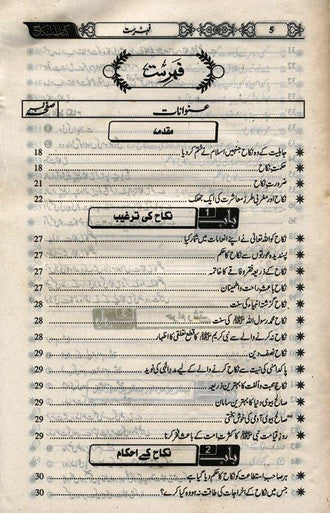 5 فہرست
فہرست
عنوانات صفحہ نمبر
مقدمہ
جاہلیت کے وہ نکاح جنہیں اسلام نے ختم کر دیا 18
حکمت نکاح 18
ضرورت نکاح 21
نکاح اور مغربی طرز معاشرت کی ایک جھلک 22
باب 1 نکاح کی ترغیب
نکاح کو اللہ تعالیٰ نے اپنے انعامات میں شمار کیا 27
پسندیدہ عورتوں سے نکاح کا حکم 27
نکاح کے ذریعہ فقر و فاقے کا خاتمہ 27
نکاح باعث راحت و اطمینان 27
نکاح گزشتہ انبیاء کی سنت 28
نکاح محمد رسول اللہ ﷺ کی سنت 28
نکاح نہ کرنے والے سے نبی کریم ﷺ کا قطع تعلقی کا اظہار 28
نکاح نصف دین 29
پاکدامنی کی نیت سے نکاح کرنے والے کے لیے مدد الٰہی کی نوید 29
نکاح محبت و الفت کا بہترین ذریعہ 29
صالح بیوی دنیا کا بہترین سامان 29
صالح بیوی آدمی کی خوش بختی 29
روز قیامت نبی ﷺ کا کثرت امت کے باعث فخر کرنا 29
باب 2 نکاح کے احکام
ہر صاحب استطاعت کو نکاح کا حکم دیا گیا ہے 30
جس میں نکاح کے اخراجات کی طاقت نہ ہو وہ کیا کرے؟ 30